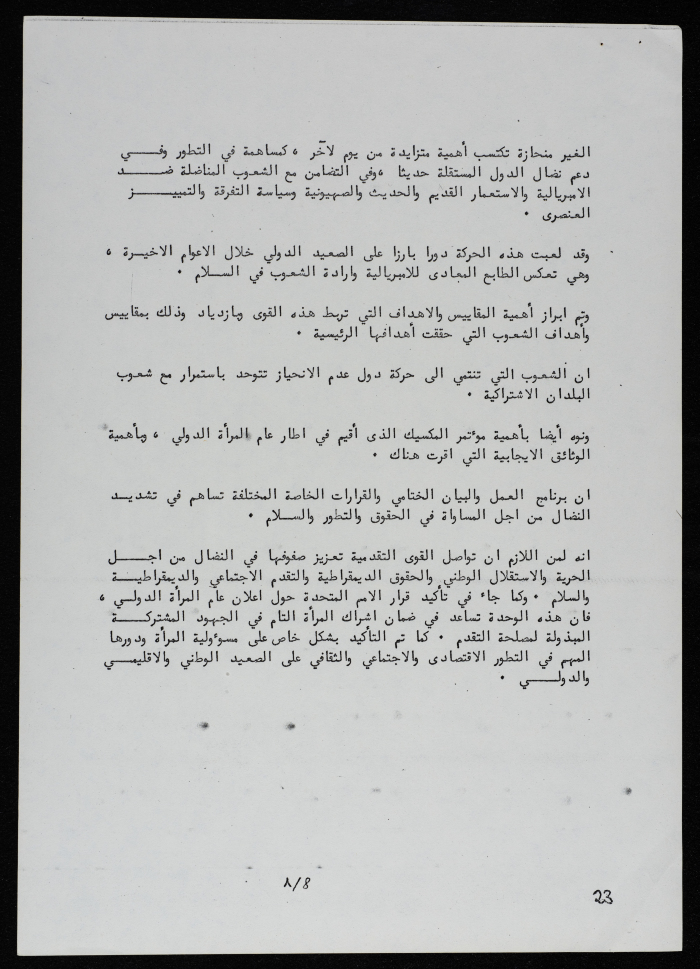 الغير منحازة تكتسب أهمية متزايدة من يوم لآخر ، كمساهمة في التطور وفـــي
دعم نضال الدول المستقلة حديثا ،وفي التضامن مع الشعوب المناضلة ضـــد
الامبريالية والاستعمار القديم والحديث والصهيونية وسياسة التفرقة والتمييـــز
العنصرى .
وقد لعبت هذه الحركة دورا بارزا على الصعيد الدولي خلال الاعوام الاخيـرة ،
وهي تعكس الطابع المعادى للامبريالية وارادة الشعوب في الســلام .
وتم ابراز أهمية المقاييس والاهداف التي تربط هذه القوى وبازدياد وذلك بمقاييس
وأهداف الشعوب التي حققت أهدافها الرئيسية .
ان الشعوب التي تنتمي الى حركة دول عدم الانحياز تتوحد باستمرار مع شعوب
البلدان الاشتراكية .
ونوه أيضا بأهمية موءتمر المكسيك الذى أقيم في اطار عام المرأة الدولي ، وبأهمية
الوثائق الايجابية التي اقرت هناك .
ان برنامج العمل والبيان الختامي والقرارات الخاصة المختلفة تساهم في تشديـد
النضال من اجل المساواة في الحقوق والتطور والســلام .
انه لمن اللازم ان تواصل القوى التقدمية تعزيز صفوفها في النضال من اجـــل
الحرية والاستقلال الوطني والحقوق الديمقراطية والتقدم الاجتماعي والديمقراطيـــة
والسلام . وكما جاء في تأكيد قرار الامم المتحدة حول اعلان عام المرأة الدولـي ،
فان هذه الوحدة تساعد في ضمان اشراك المرأة التام في الجهود المشتركـــة
المبذولة لمصلحة التقدم . كما تم التأكيد بشكل خاص على مسوءولية المرأة ودورها
المهم في التطور الاقتصادى والاجتماعي والثقافي على الصعيد الوطني والاقليمـي
والدولـــي .
٨/8
23